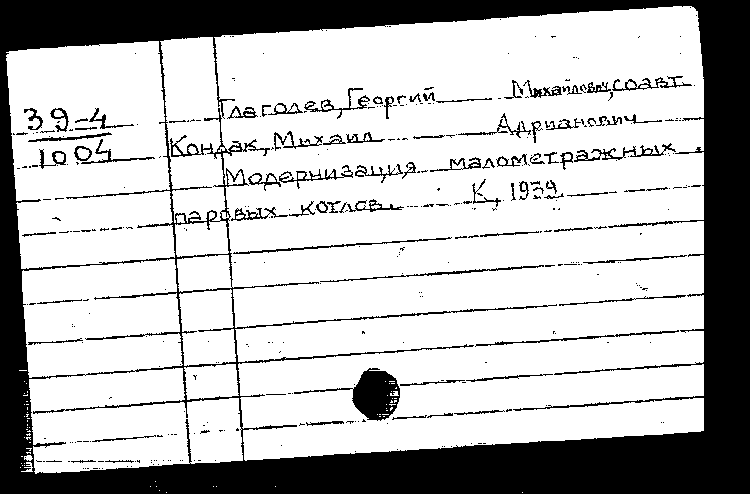 39-4
1004
Глаголев, Георгий Михайлович, соавт.
Кондак, Михаил Адрианович
Модернизация малометражных
паровых котлов. К, 1939.